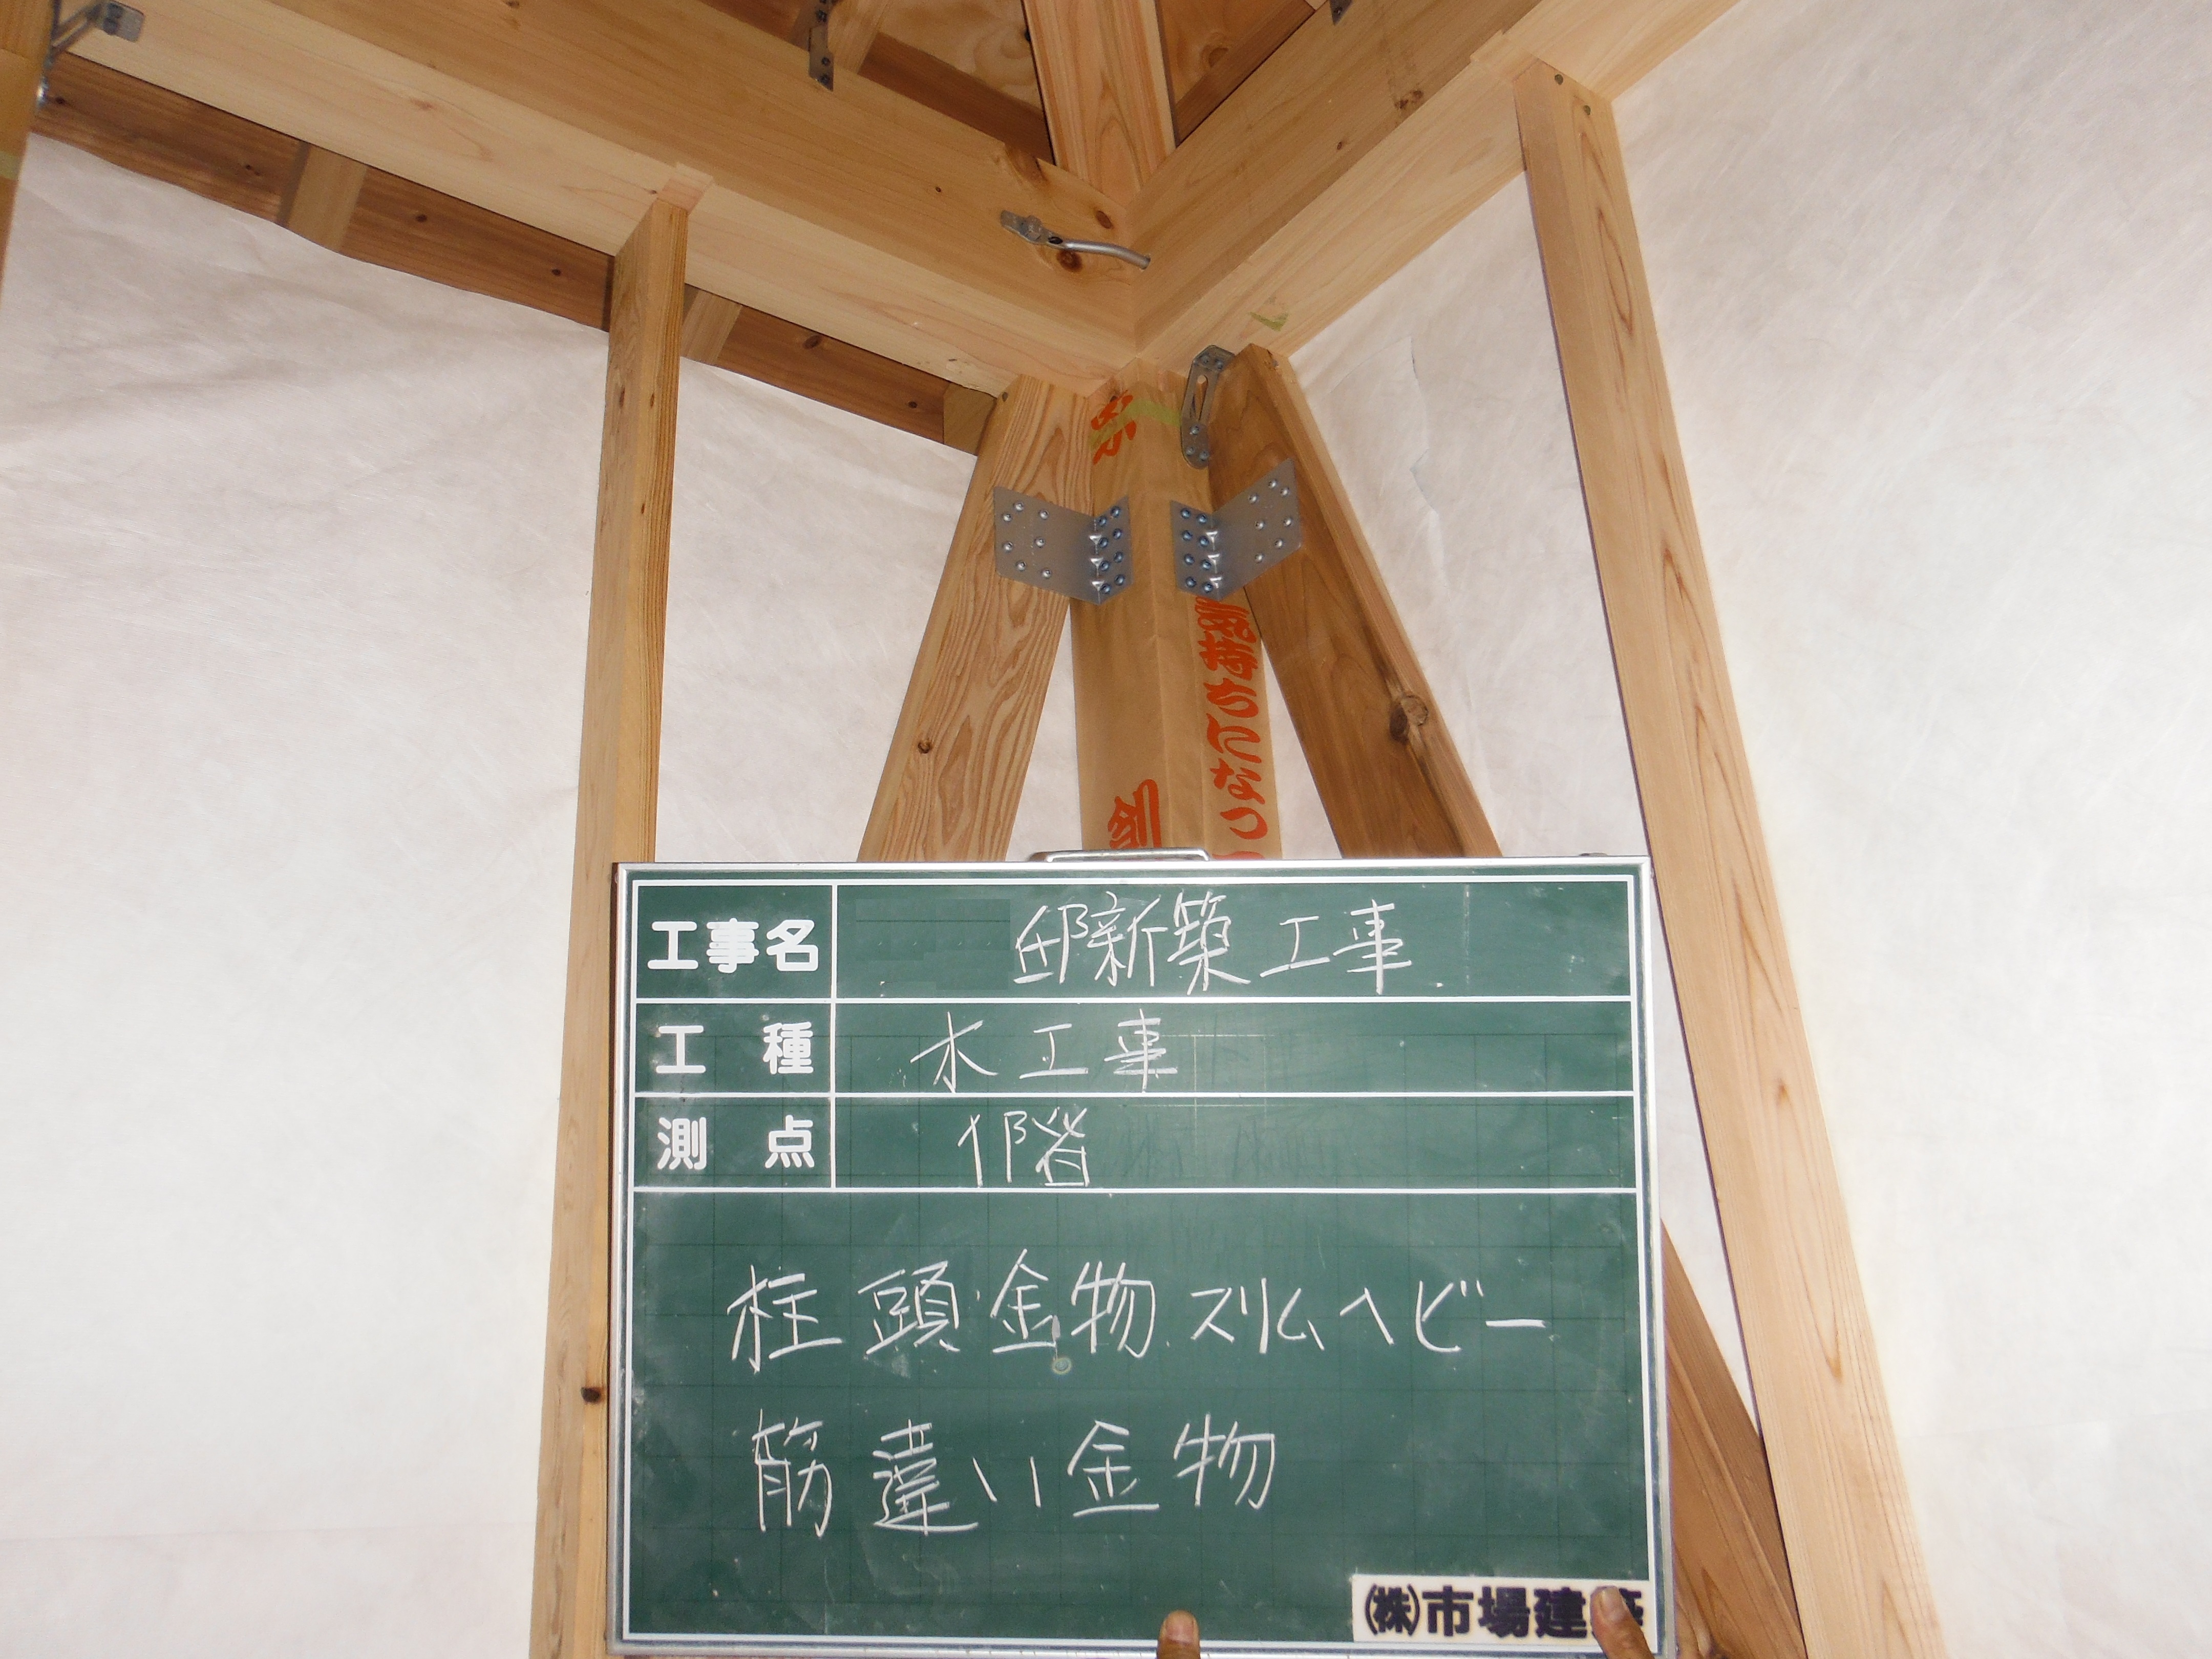 工事名 邸新築工事
工種 木工事
測点 1階
柱頭金物 スリムヘビー
筋違い金物
(株)市場建築